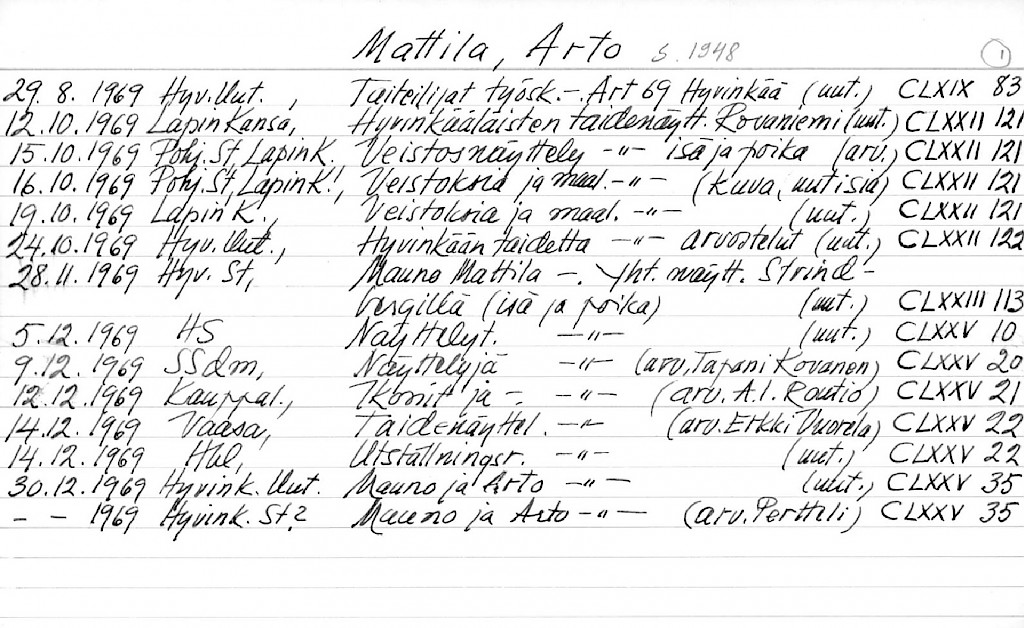 Mattila, Arto s. 1948 1
29. 8. 1969 Hyv. Uut. , Taiteilijat työsk. -. Art 69 Hyvinkää (uut.) CLXIX 83
12.10.1969 Lapin Kansa, Hyvinkääläisten taidenäytt. Rovaniemi (uut.) CLXXII 121
15.10.1969 Pohj. St, Lapin K. Veistosnäyttely -"- isä ja poika (arv.) CLXXII 121
16.10.1969 Pohj. St, Lapin K!, Veistoksia ja maal. -"- (kuva, uutisia) CLXXII 121
19.10.1969 Lapin K., Veistoksia ja maal. -"- (uut.) CLXXII 121
24.10.1969 Hyv. Uut., Hyvinkään taidetta -"- arvostelut (uut.) CLXXII 122
28.11.1969 Hyv. St, Mauno Mattila -. Yht. näytt. Strind-
bergillä (isä ja poika) (uut.) CLXXIII 113
5.12.1969 HS Näyttelyt. -"- (uut.) CLXXV 10
9.12.1969 SSdm, Näyttelyjä -"- (arv. Tapani Kovanen) CLXXV 20
12.12.1969 Kauppal., Ikonit ja -. -"- (arv. A.I. Routio) CLXXV 21
14.12.1969 Vaasa, Taidenäyttel. -"- (arv. Erkki Vuorela) CLXXV 22
14.12.1969 Hbl, Utställningsr. -"- (uut.) CLXXV 22
30.12.1969 Hyvink. Uut. Mauno ja Arto -"- (uut.) CLXXV 35
- - 1969 Hyvink. St? Mauno ja Arto -"- (arv. Perttili) CLXXV 35